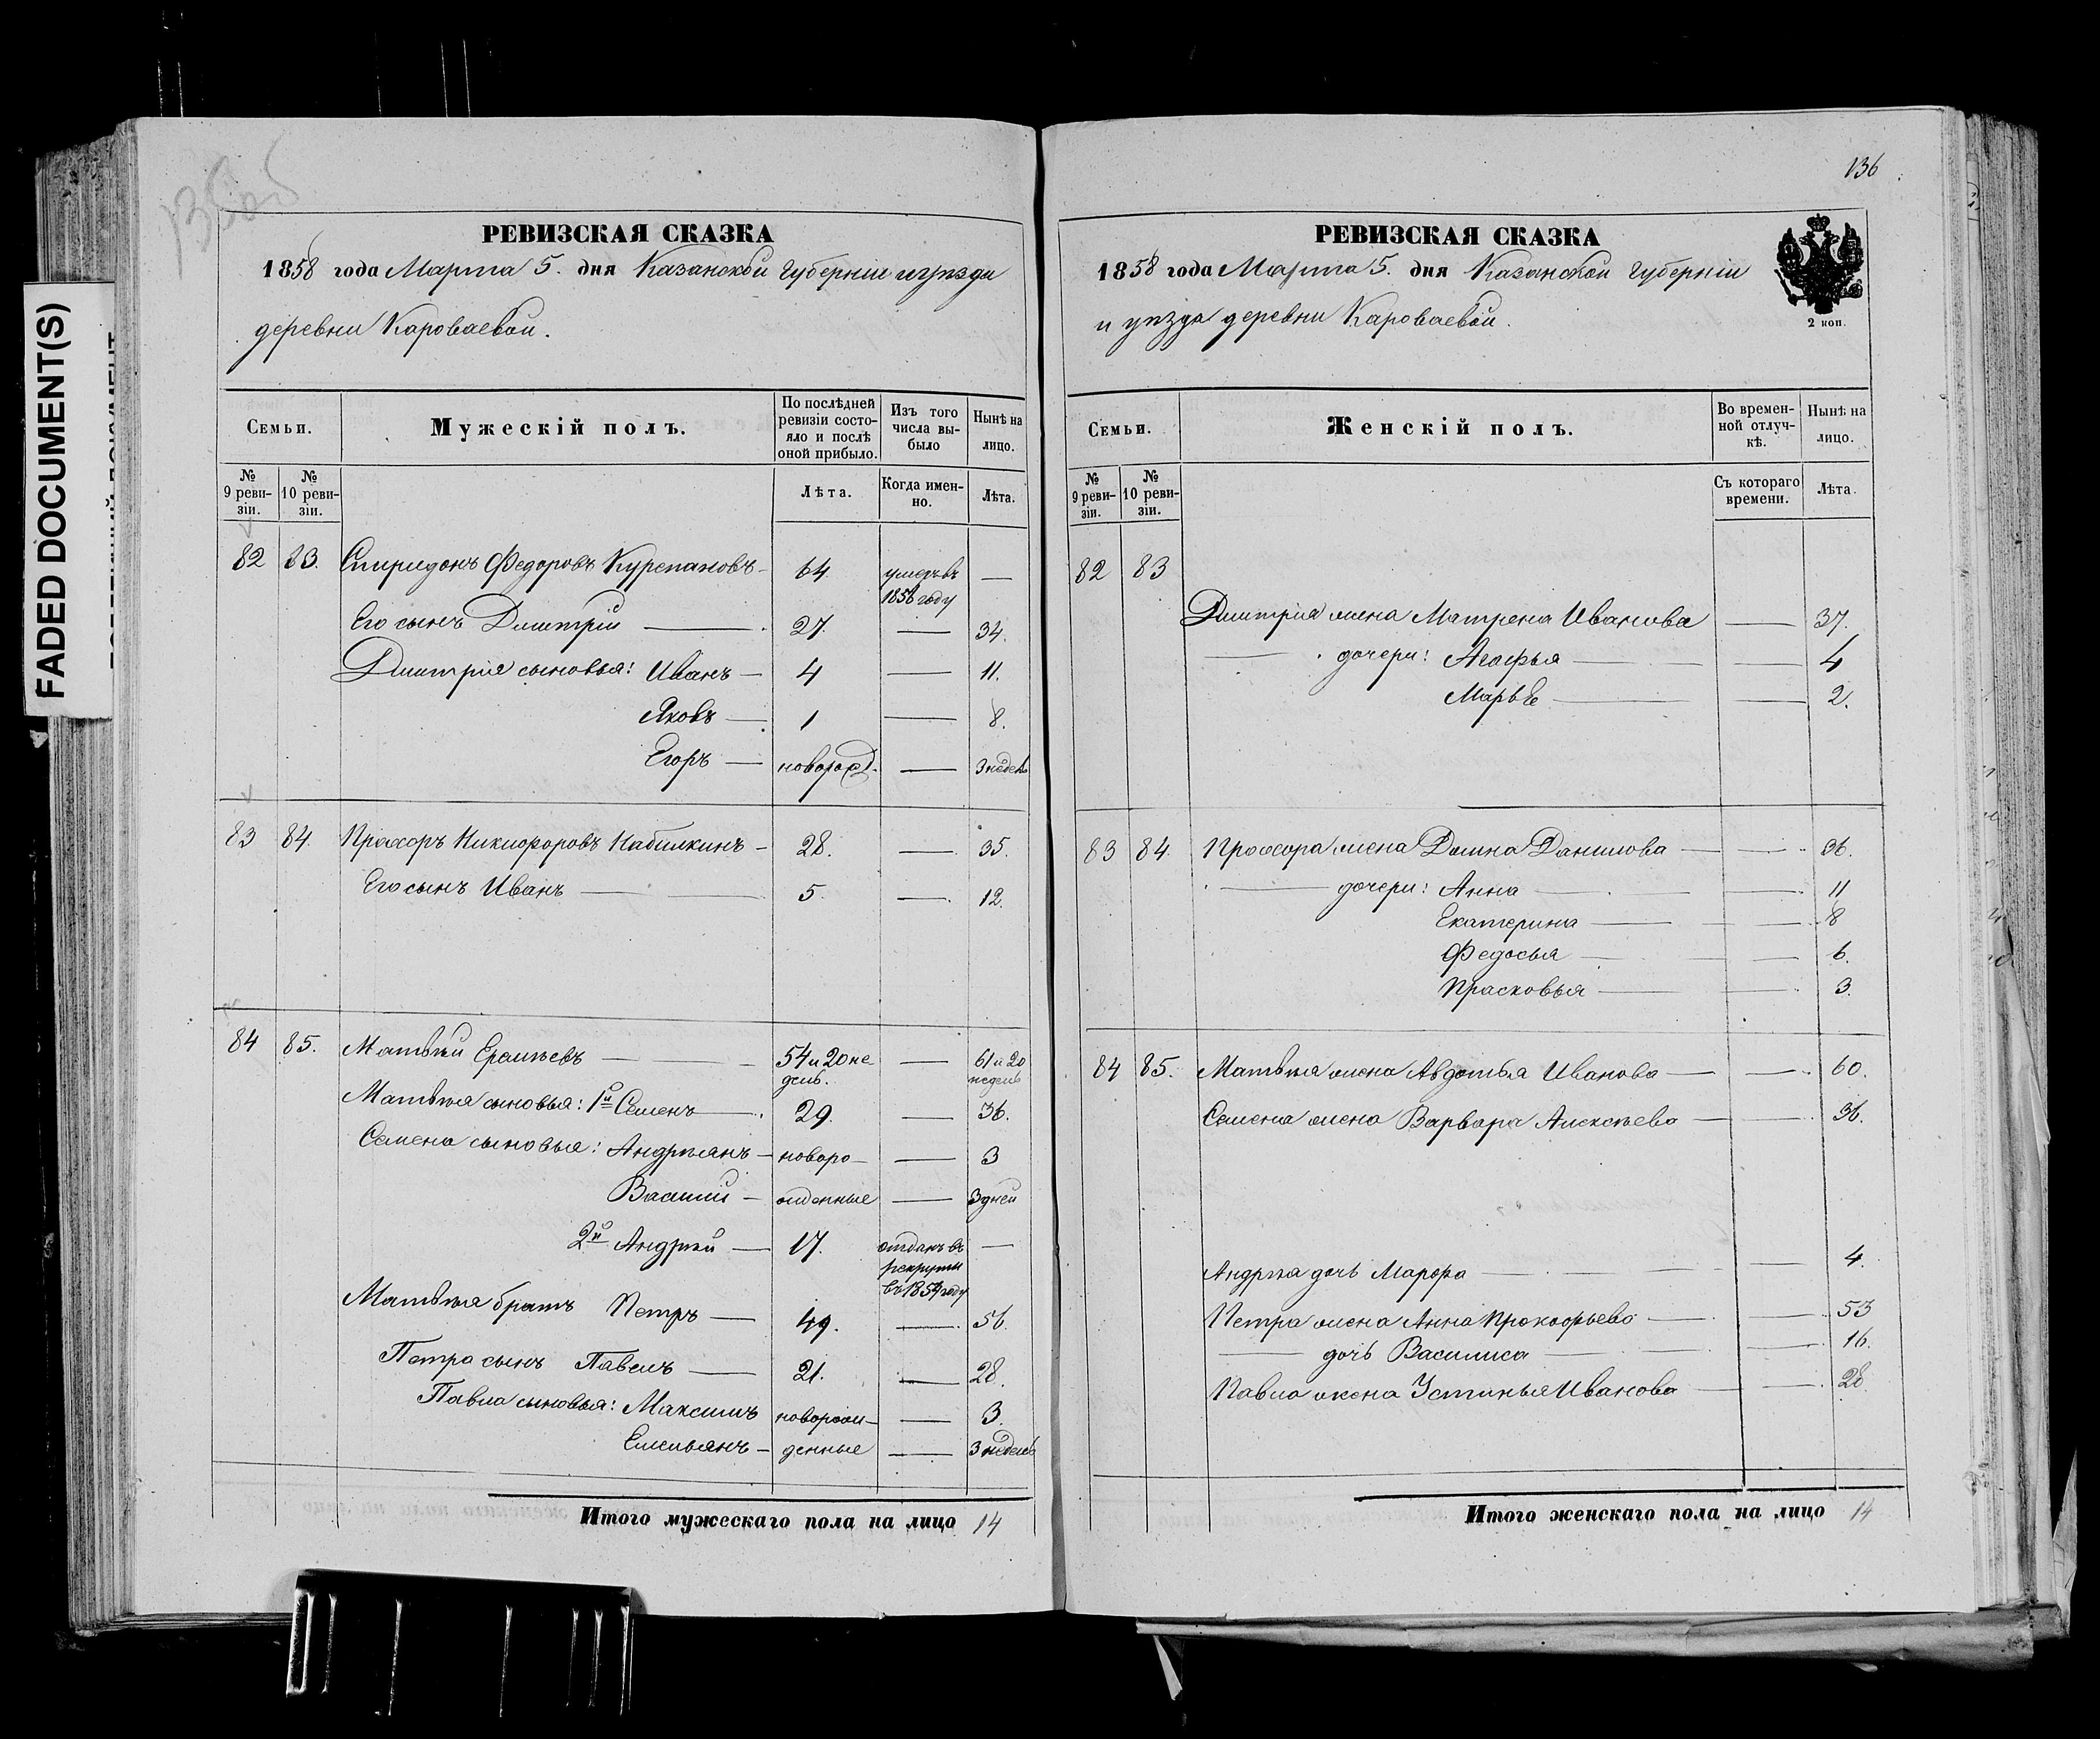 FADED DOCUMENT(S)
136 об
РЕВИЗСКАЯ СКАЗКА
1858 года Марта 5. дня Казанской Губерніи и уѣзда
деревни Кароваевой.
Семьи.
Мужескій полъ.
По послѣдней ревизіи состояло и послѣ оной прибыло.
Изъ того числа выбыло
Нынѣ на лицо.
№ 9 ревизіи.
№ 10 ревизіи.
Лѣта.
Когда именно.
Лѣта.
82 83. Спиридонъ Федоровъ Курепановъ - 64. умеръ въ 1856 году —
Его сынъ Дмитрій — 27. — 34.
Дмитрія сыновья: Иванъ — 4 — 11.
Яковъ — 1 — 8.
Егоръ — новорожд. — 3 недель
83 84. Прохоръ Никифоровъ Набилкинъ - 28. — 35.
Его сынъ Иванъ — 5. — 12.
84 85. Матвѣй Ермѣевъ — 54 и 20 недель. — 61 и 20 недель
Матвѣя сыновья: 1й Семенъ — 29. — 36.
Семена сыновья: Андреянъ - новоро- — 3
Василій — жденные — 3 дней
2й Андрей — 17. отданъ въ рекруты въ 1854 году —
Матвѣя братъ Петръ — 49. — 56.
Петра сынъ Павелъ — 21. — 28.
Павла сыновья: Максимъ новорож- — 3.
Емельянъ - денные — 3 недель
Итого мужескаго пола на лицо 14
136
РЕВИЗСКАЯ СКАЗКА
1858 года Марта 5. дня Казанской Губерніи
и уѣзда деревни Кароваевой.
2 коп.
Семьи.
Женскій полъ.
Во временной отлучкѣ.
Нынѣ на лицо.
№ 9 ревизіи.
№ 10 ревизіи.
Съ котораго времени.
Лѣта.
82 83
Дмитрія жена Матрена Иванова — 37.
— дочери: Агафья — 4
Марья — 2.
83 84. Прохора жена Домна Данилова — 36.
— дочери: Анна — 11
Екатерина — 8
Федосья — 6.
Прасковья — 3.
84 85. Матвѣя жена Авдотья Иванова — 60.
Семена жена Варвара Алексѣева — 36.
Андрея дочь Марфа — 4.
Петра жена Анна Прокофьева — 53
— дочь Василиса — 16.
Павла жена Устинья Иванова — 28.
Итого женскаго пола на лицо 14